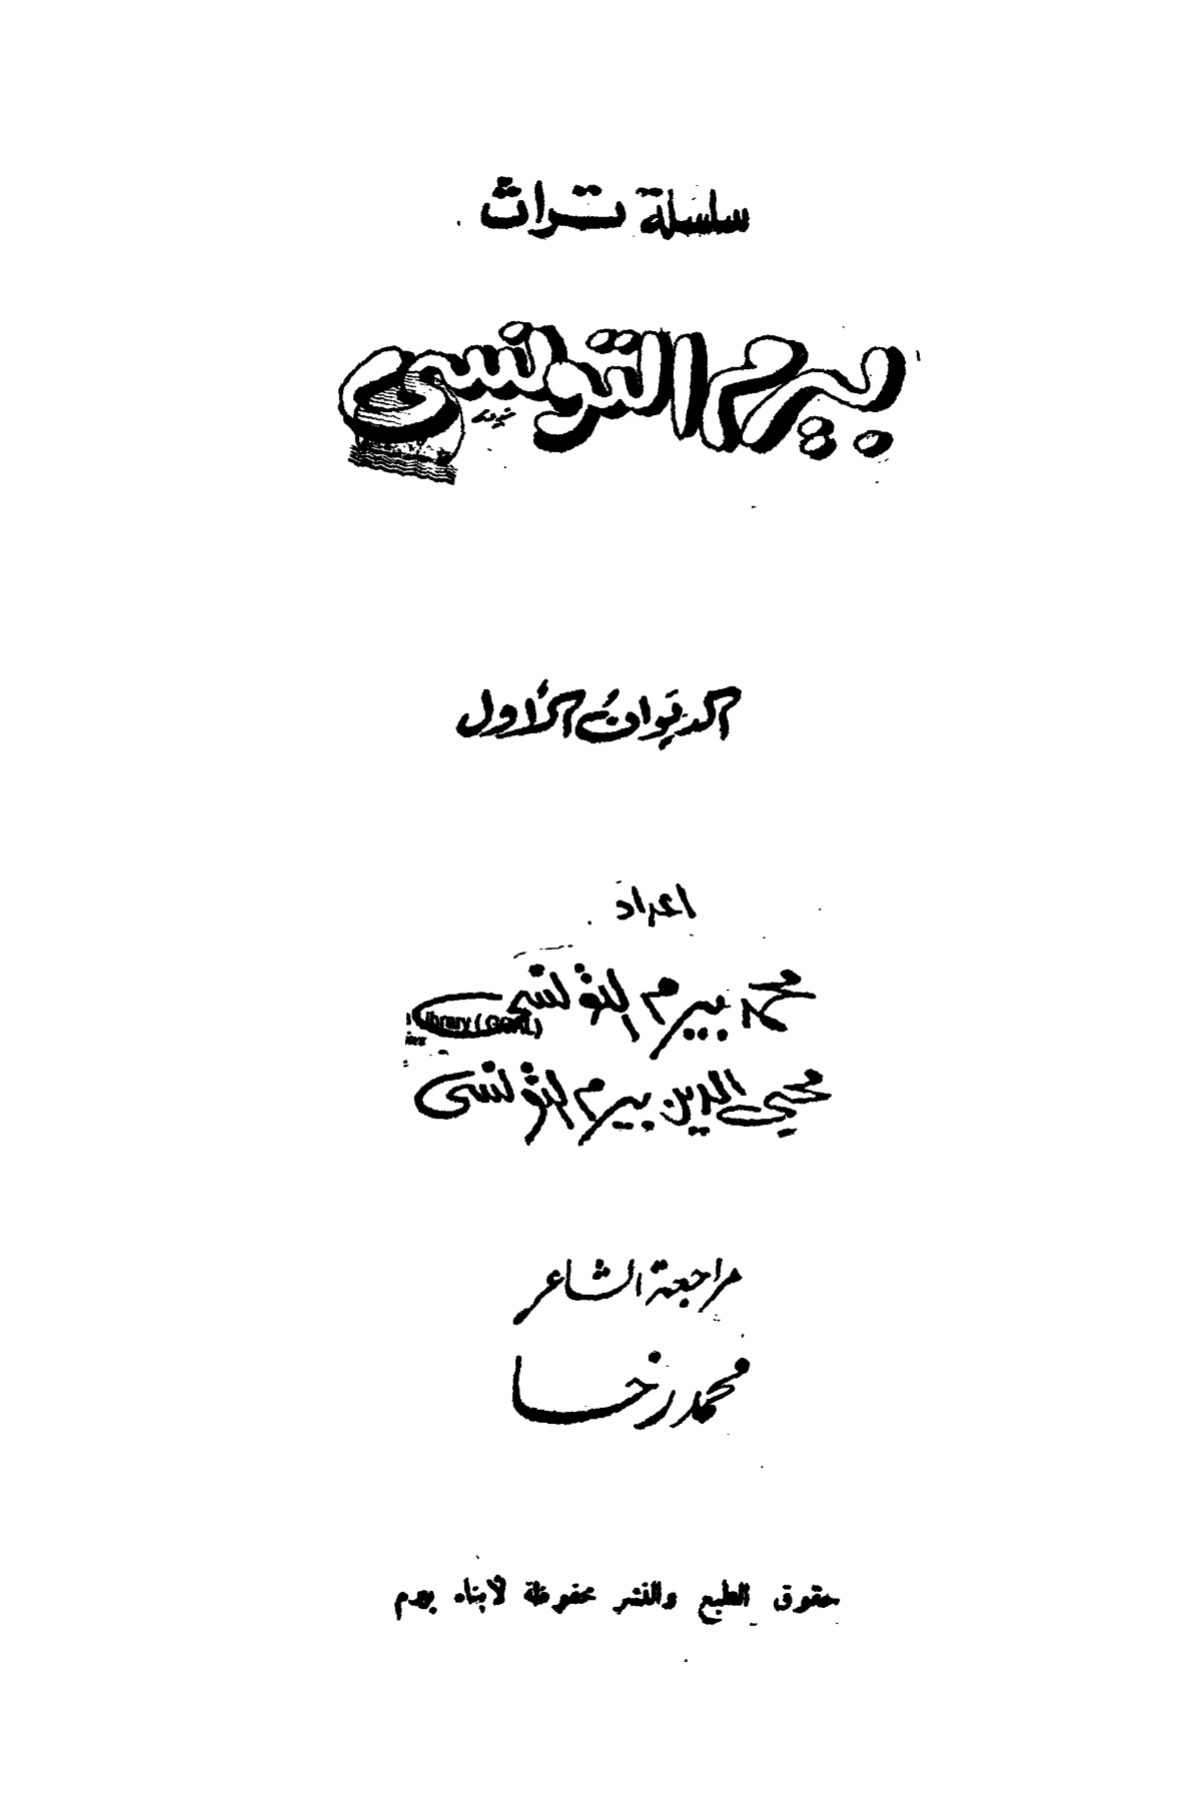 سلسلة تراث
بيرم التونسي
الديوان الأول
اعداد
محمد بيرم التونسي
Library (GOAL)
محيى الدين بيرم التونسى
مراجعة الشاعر
محمد رخا
حقوق الطبع والنشر محفوظة لأبناء بيرم